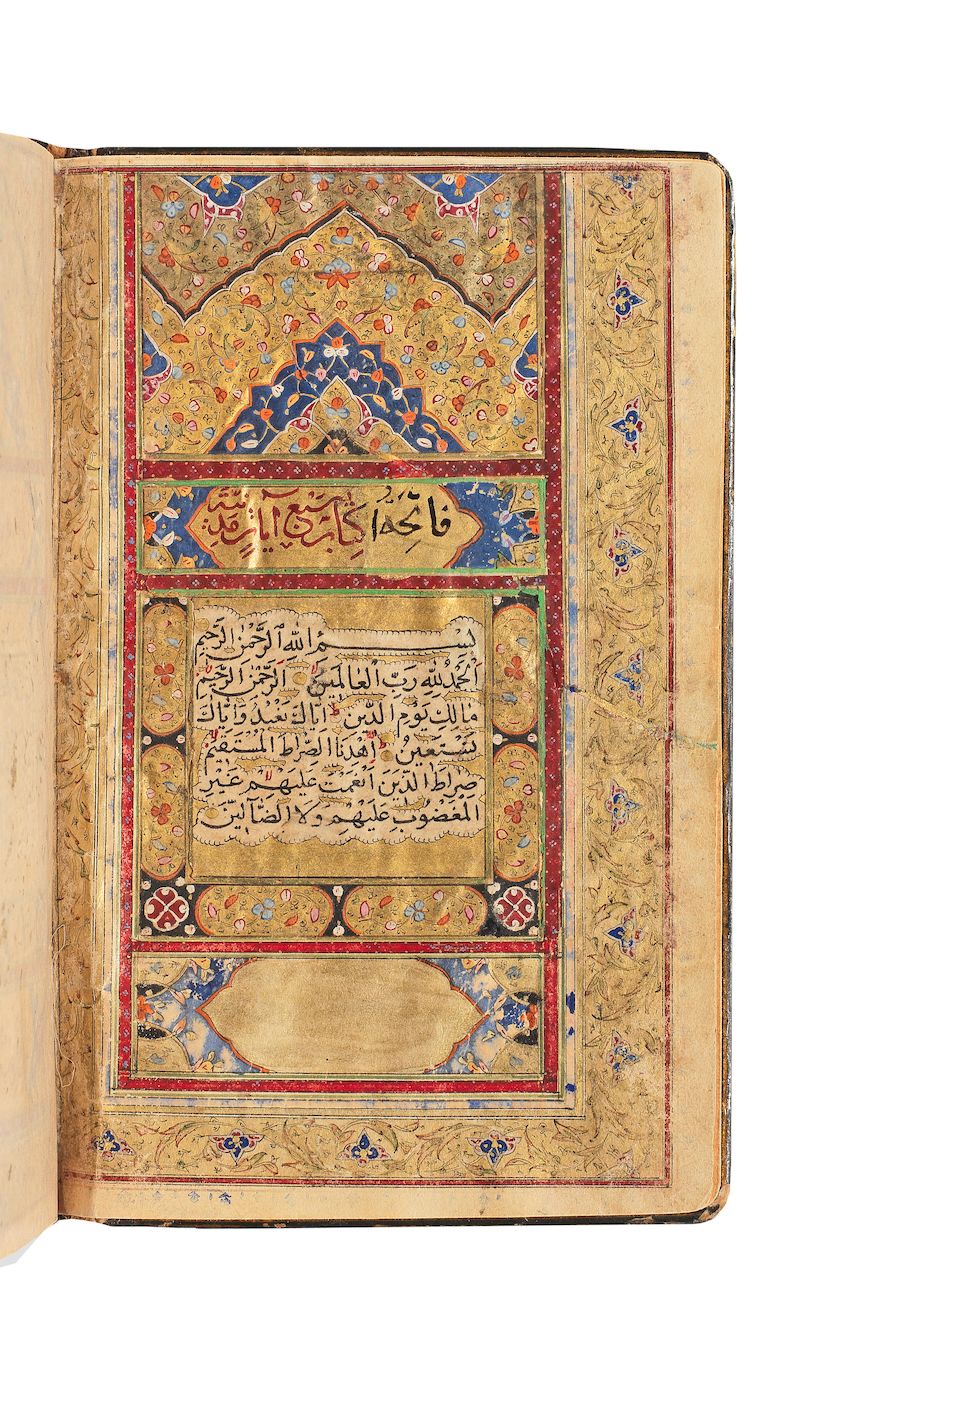 فاتحة الكتاب سبع آيات مدنية
بِسْمِ اللهِ الرَّحْمٰنِ الرَّحِيمِ
اَلْحَمْدُ لِلّٰهِ رَبِّ الْعَالَمِينَ الرَّحْمٰنِ الرَّحِيمِ
مَالِكِ يَوْمِ الدِّينِ اِيَّاكَ نَعْبُدُ وَاِيَّاكَ
نَسْتَعِينُ اِهْدِنَا الصِّرَاطَ الْمُسْتَقِيمَ
صِرَاطَ الَّذِينَ اَنْعَمْتَ عَلَيْهِمْ غَيْرِ
الْمَغْضُوبِ عَلَيْهِمْ وَلَا الضَّآلِّينَ